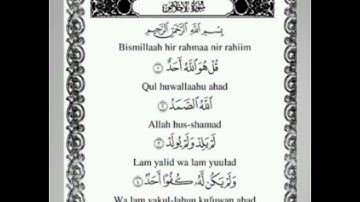 سورة الإخلاص
بِسْمِ اللَّهِ الرَّحْمَٰنِ الرَّحِيمِ
Bismillaah hir rahmaa nir rahiim
قُلْ هُوَ اللَّهُ أَحَدٌ ١
Qul huwallaahu ahad
اللَّهُ الصَّمَدُ ٢
Allah hus-shamad
لَمْ يَلِدْ وَلَمْ يُولَدْ ٣
Lam yalid wa lam yuulad
وَلَمْ يَكُن لَّهُ كُفُوًا أَحَدٌ ٤
Wa lam yakul-lahuu kufuwan ahad